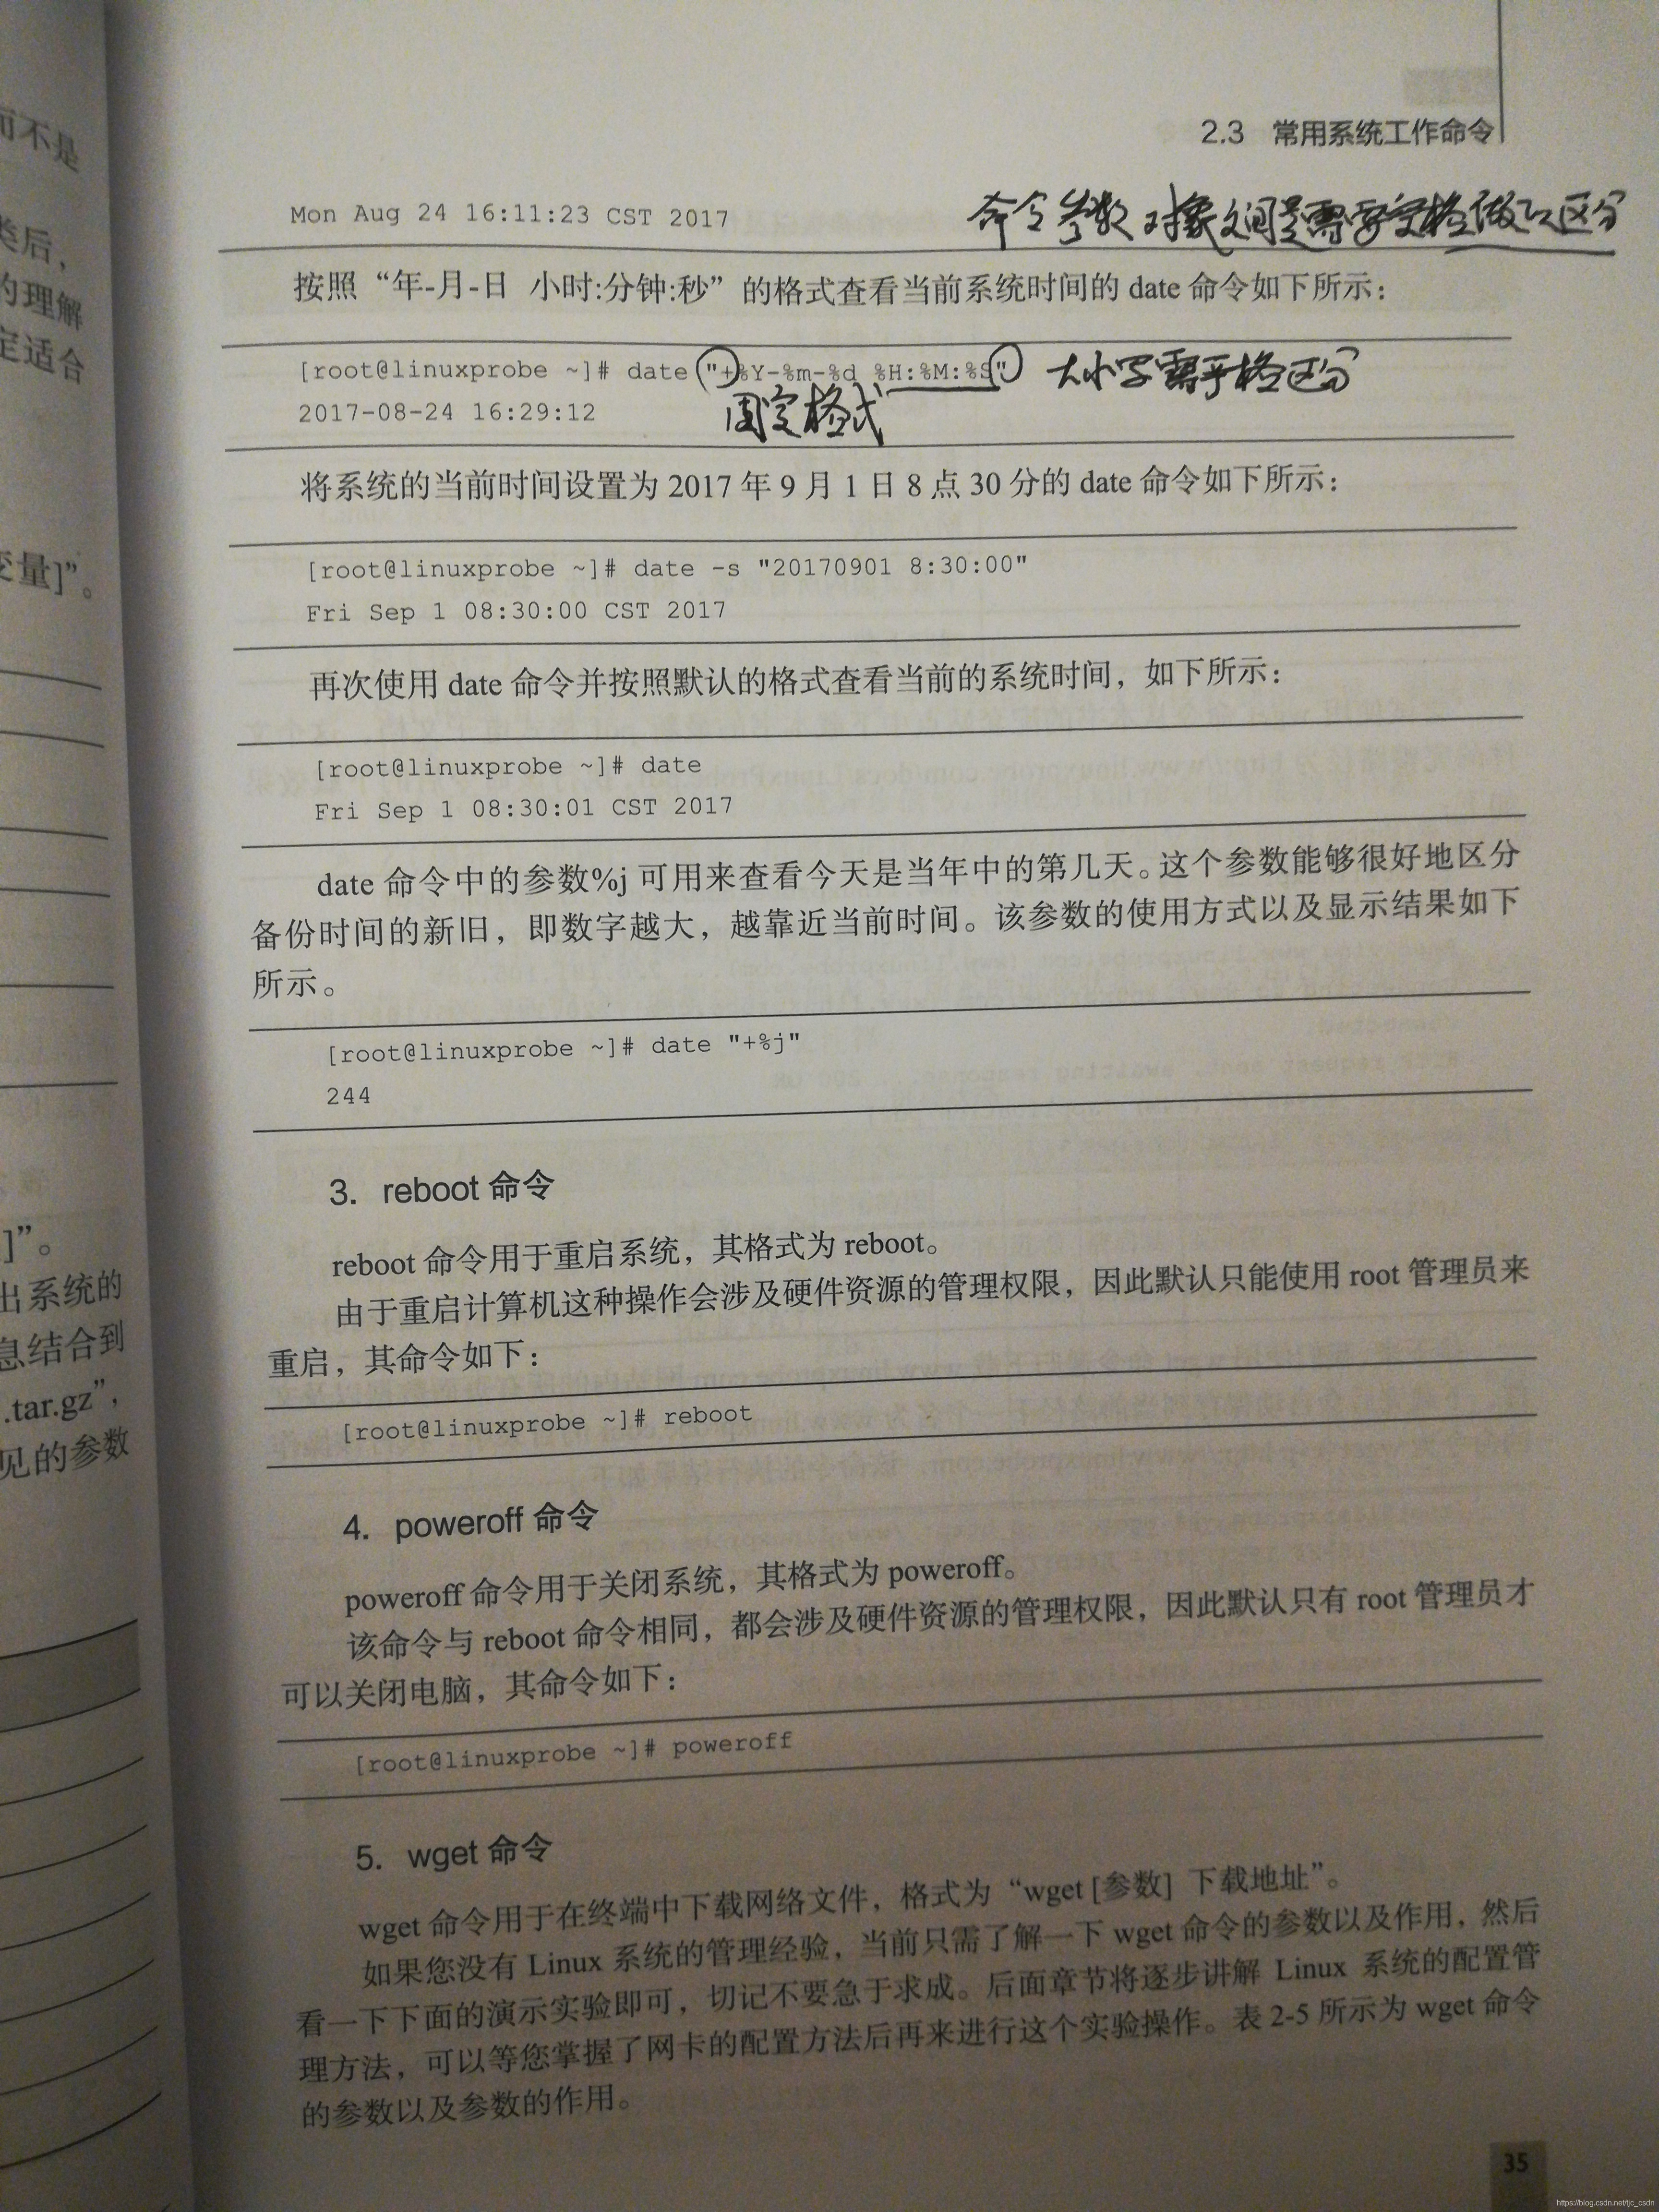 而不是
类后，
的理解
定适合
变量]”。
]”。
出系统的
息结合到
.tar.gz”，
见的参数
2.3 常用系统工作命令
Mon Aug 24 16:11:23 CST 2017
命令参数 对象之间是需要空格做以区分
按照“年-月-日 小时:分钟:秒”的格式查看当前系统时间的 date 命令如下所示：
[root@linuxprobe ~]# date "+%Y-%m-%d %H:%M:%S"
大小写需严格区分
2017-08-24 16:29:12
固定格式
将系统的当前时间设置为 2017 年 9 月 1 日 8 点 30 分的 date 命令如下所示：
[root@linuxprobe ~]# date -s "20170901 8:30:00"
Fri Sep 1 08:30:00 CST 2017
再次使用 date 命令并按照默认的格式查看当前的系统时间，如下所示：
[root@linuxprobe ~]# date
Fri Sep 1 08:30:01 CST 2017
date 命令中的参数%j 可用来查看今天是当年中的第几天。这个参数能够很好地区分
备份时间的新旧，即数字越大，越靠近当前时间。该参数的使用方式以及显示结果如下
所示。
[root@linuxprobe ~]# date "+%j"
244
3. reboot 命令
reboot 命令用于重启系统，其格式为 reboot。
由于重启计算机这种操作会涉及硬件资源的管理权限，因此默认只能使用 root 管理员来
重启，其命令如下：
[root@linuxprobe ~]# reboot
4. poweroff 命令
poweroff 命令用于关闭系统，其格式为 poweroff。
该命令与 reboot 命令相同，都会涉及硬件资源的管理权限，因此默认只有 root 管理员才
可以关闭电脑，其命令如下：
[root@linuxprobe ~]# poweroff
5. wget 命令
wget 命令用于在终端中下载网络文件，格式为“wget [参数] 下载地址”。
如果您没有 Linux 系统的管理经验，当前只需了解一下 wget 命令的参数以及作用，然后
看一下下面的演示实验即可，切记不要急于求成。后面章节将逐步讲解 Linux 系统的配置管
理方法，可以等您掌握了网卡的配置方法后再来进行这个实验操作。表 2-5 所示为 wget 命令
的参数以及参数的作用。
35
https://blog.csdn.net/tjc_csdn